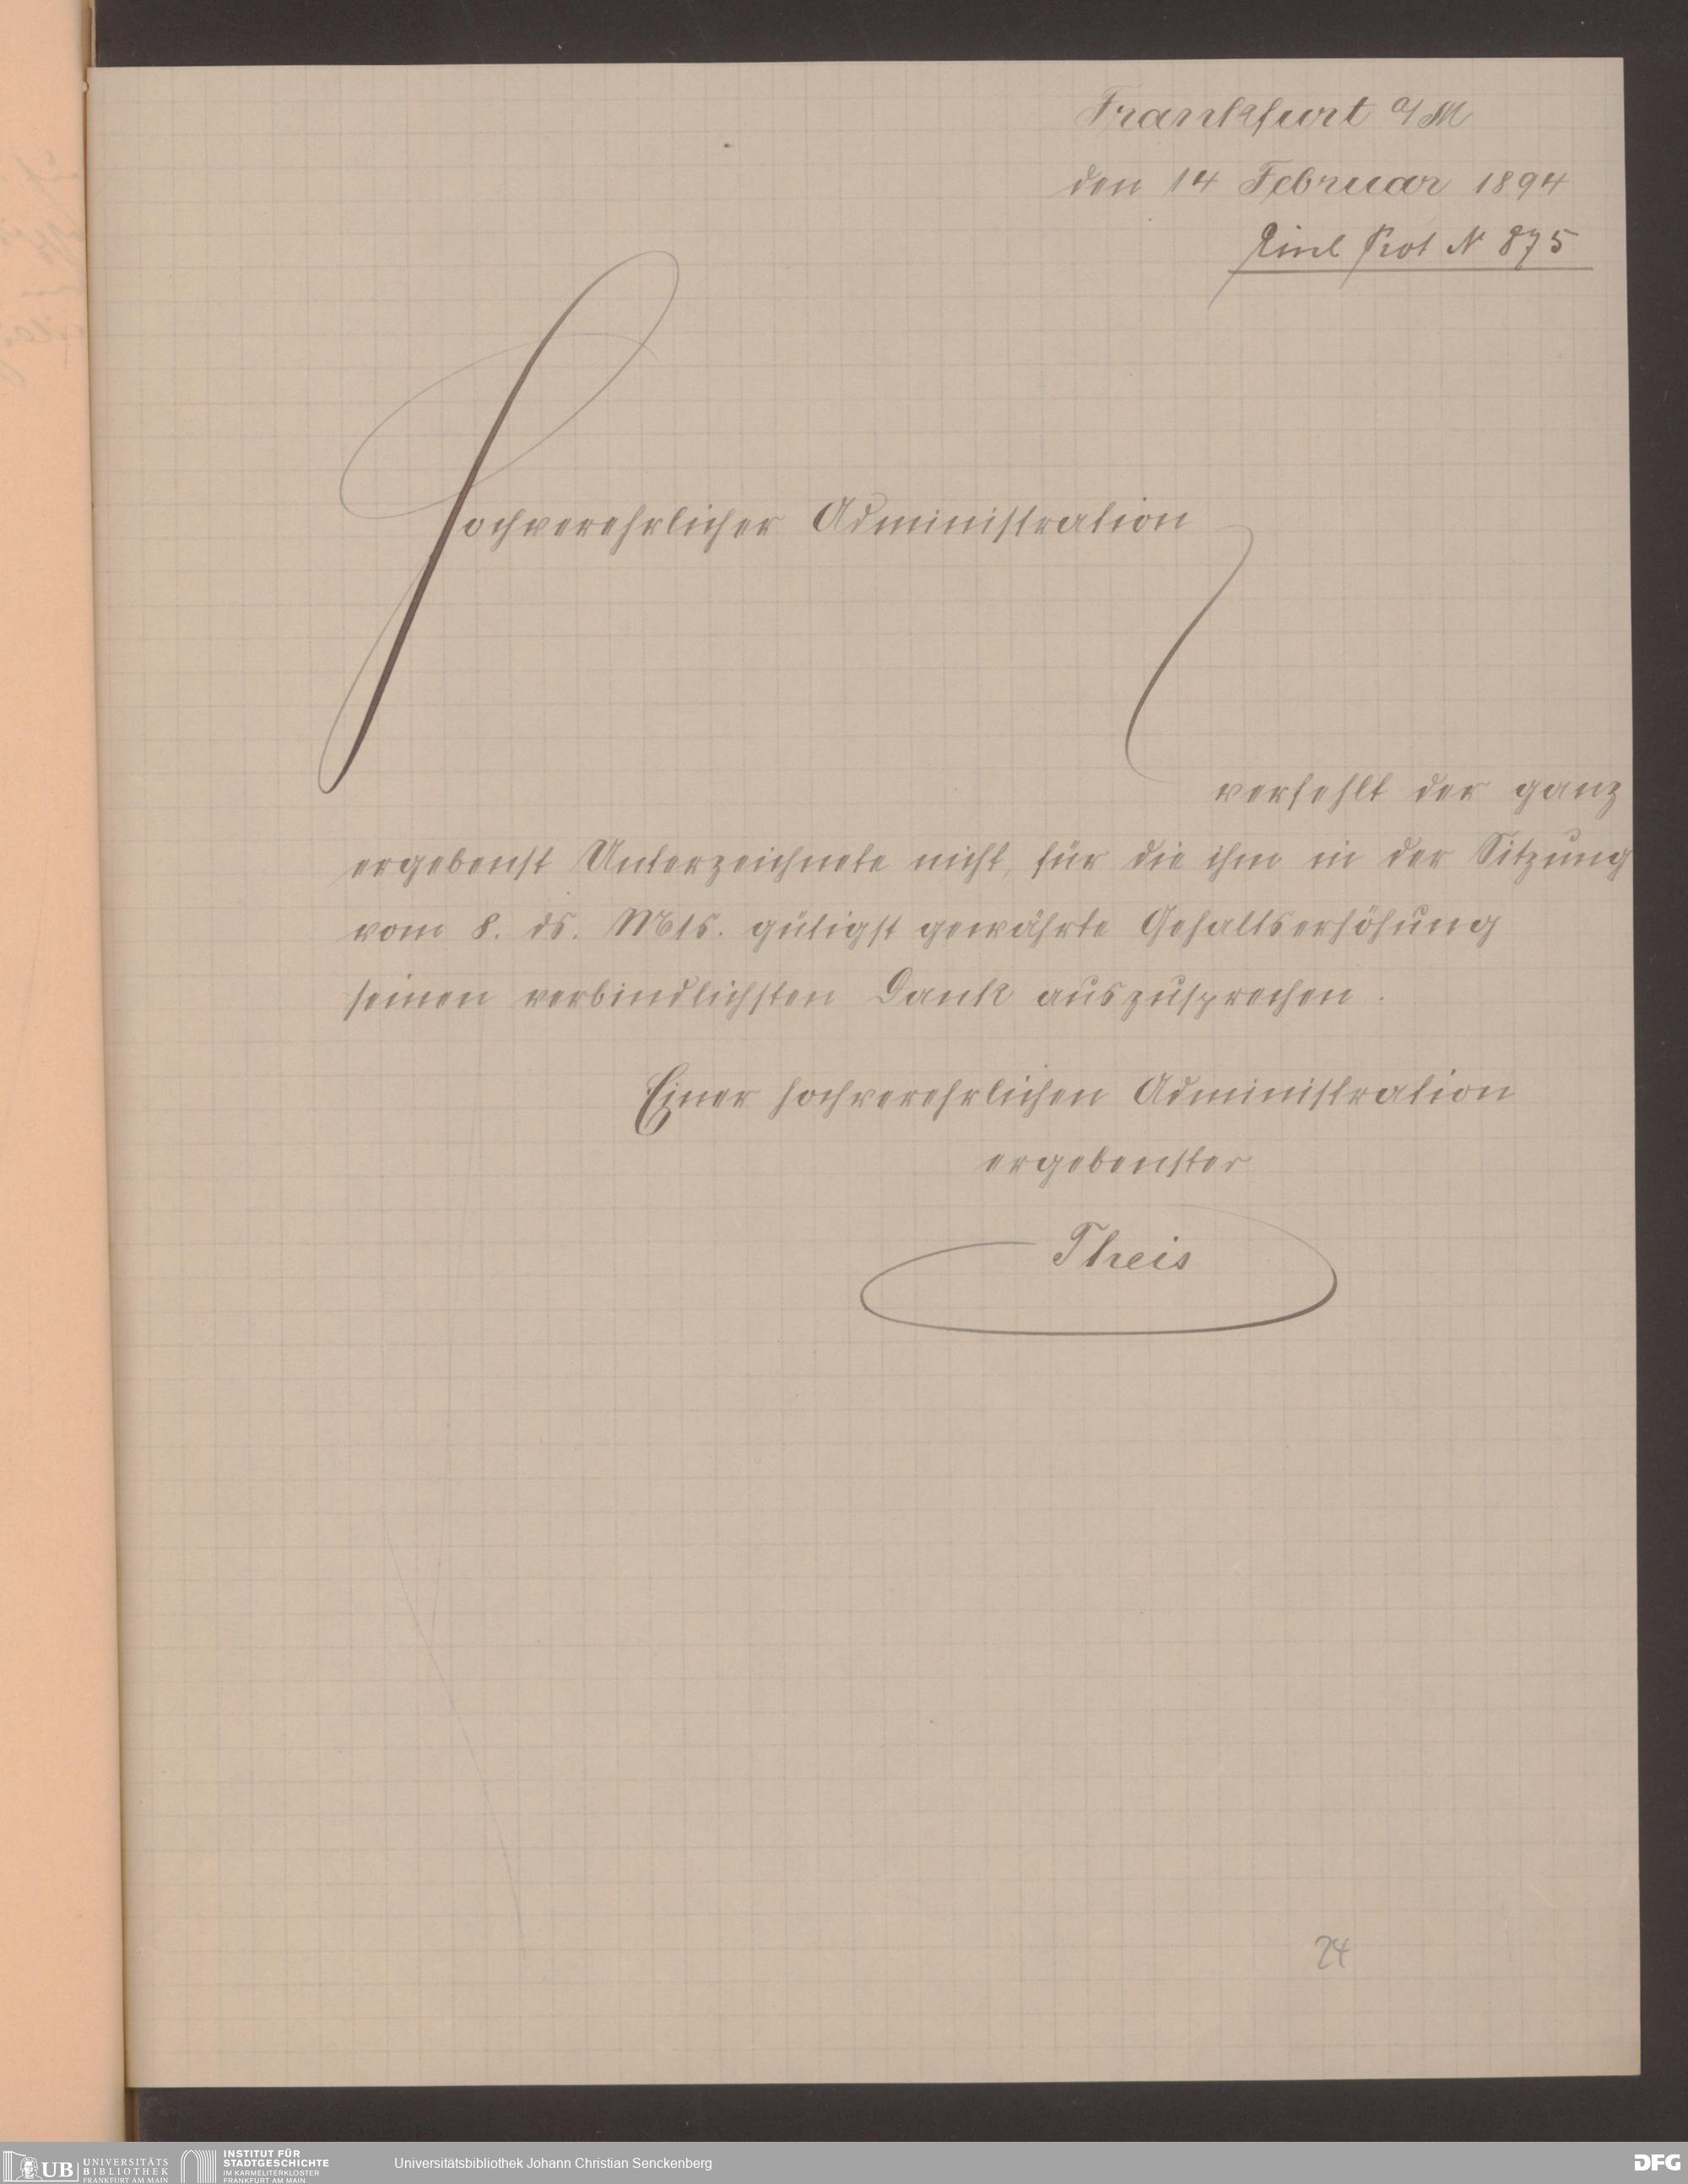 Frankfurt a/M
den 14 Februar 1894
Einl Prot N 875
Hochverehrlicher Administration
verfehlt der ganz
ergebenst Unterzeichnete nicht, für die ihm in der Sitzung
vom 8. ds. Mts. gütigst gewährte Gehaltserhöhung
seinen verbindlichsten Dank auszusprechen.
Einer hochverehrlichen Administration
ergebenster
Theis
24
UB UNIVERSITÄTS
BIBLIOTHEK
FRANKFURT AM MAIN
INSTITUT FÜR
STADTGESCHICHTE
IM KARMELITERKLOSTER
FRANKFURT AM MAIN
Universitätsbibliothek Johann Christian Senckenberg
DFG